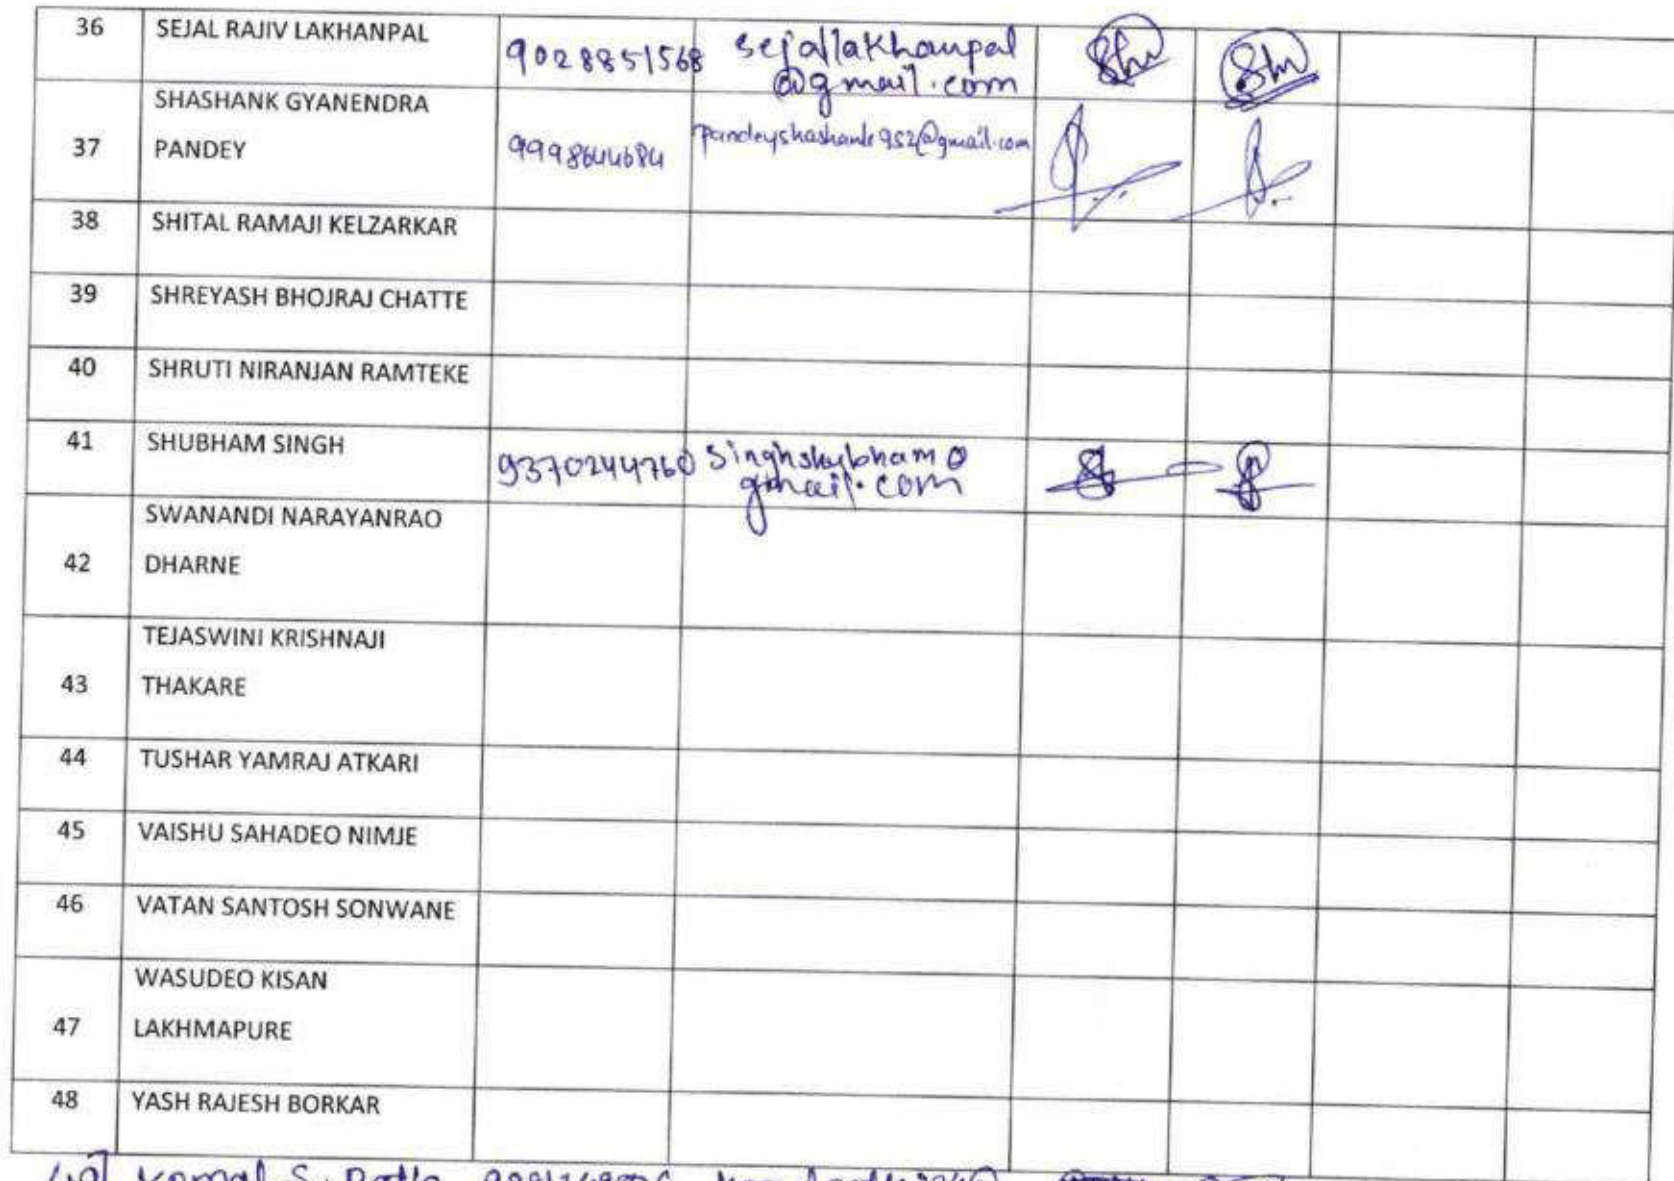 36 SEJAL RAJIV LAKHANPAL 9028851568 sejallakhanpal
@gmail.com
SHASHANK GYANENDRA
37 PANDEY 9998644684 pandeyshashank952@gmail.com
38 SHITAL RAMAJI KELZARKAR
39 SHREYASH BHOJRAJ CHATTE
40 SHRUTI NIRANJAN RAMTEKE
41 SHUBHAM SINGH 9370244760 singhshubham@
gmail.com
SWANANDI NARAYANRAO
42 DHARNE
TEJASWINI KRISHNAJI
43 THAKARE
44 TUSHAR YAMRAJ ATKARI
45 VAISHU SAHADEO NIMJE
46 VATAN SANTOSH SONWANE
WASUDEO KISAN
47 LAKHMAPURE
48 YASH RAJESH BORKAR
49] Komal S.